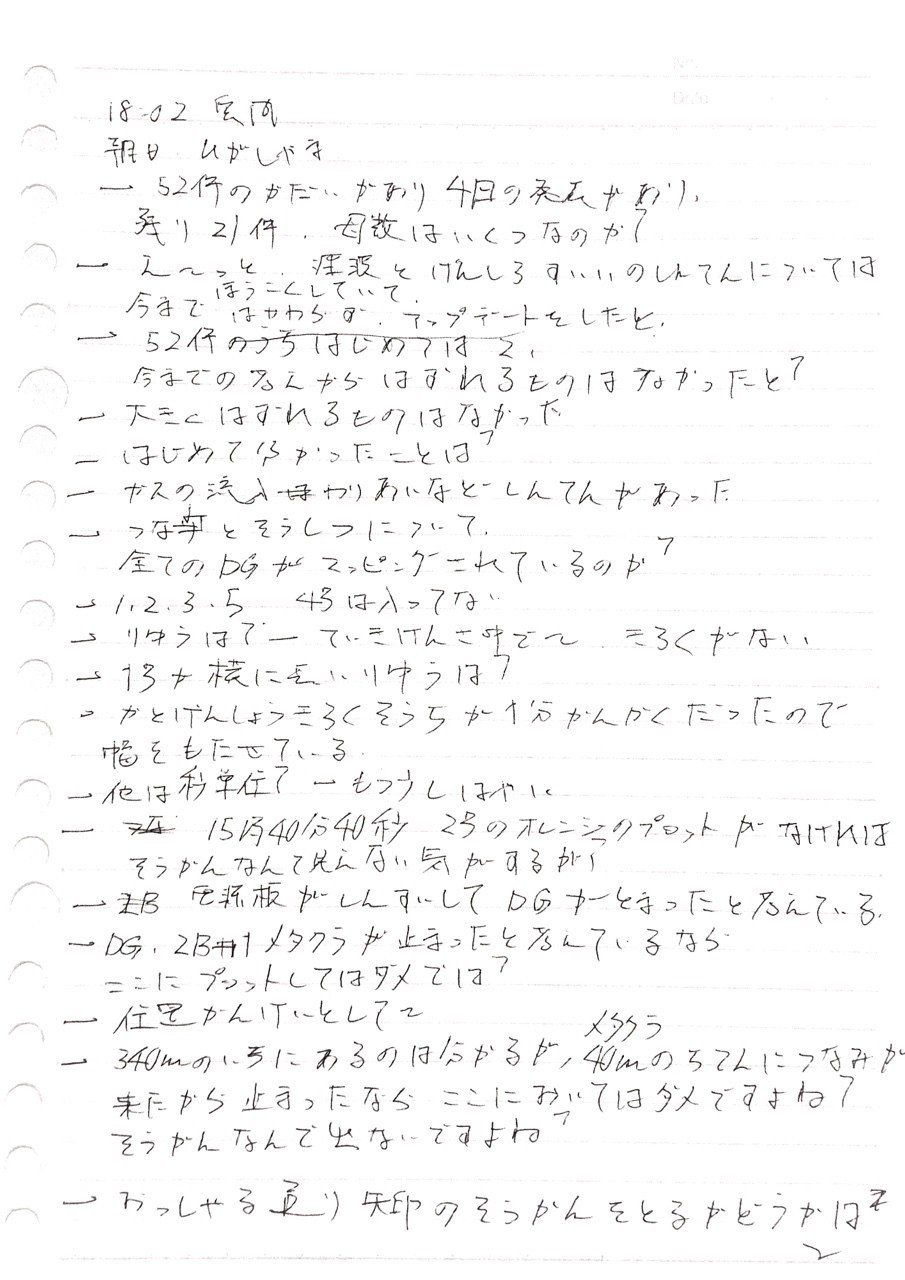 18:02 質問
朝日 ひがしやま
ー 52件のかだいがあり 4回の発表があり、
残り21件、母数はいくつなのか?
ー え〜っと、津波とげんしろすいいのしんてんについては
今までほうこくしていて、
はかわらず、アップデートをしたと、
ー 52件のうちはじめては2、
今までの考えからはずれるものはなかったと?
ー 大きくはずれるものはなかった
ー はじめて分かったことは?
ー ガスの流入 わりあいなどしんてんがあった
ー つなみとそうしつについて、
全てのDGがマッピングされているのか?
ー 1、2、3、5 4号は入ってない
ー りゆうは? ー ていきけんさ中で〜 きろくがない
ー 1号が横に長いりゆうは?
ー かとげんしょうきろくそうちが1分かんかくだったので
幅をもたせている
ー 他は秒単位? ー もう少しはやい
ー 15時40分40秒 2号のオレンジのプロットがなければ
そうかんなんて見えない気がするが
ー 電源板がしんすいしてDGがとまったと考えている、
ー DG、2B メタクラが止まったと考えているなら
ここにプロットしてはダメでは?
ー 位置かんけいとして〜
ー 340mのいちにあるのは分かるが、メタクラ 40mのちてんにつなみが
来たから止まったなら ここにおいてはダメですよね?
そうかんなんて出ないですよね?
ー おっしゃる通り 矢印のそうかんをとるかどうかは
2